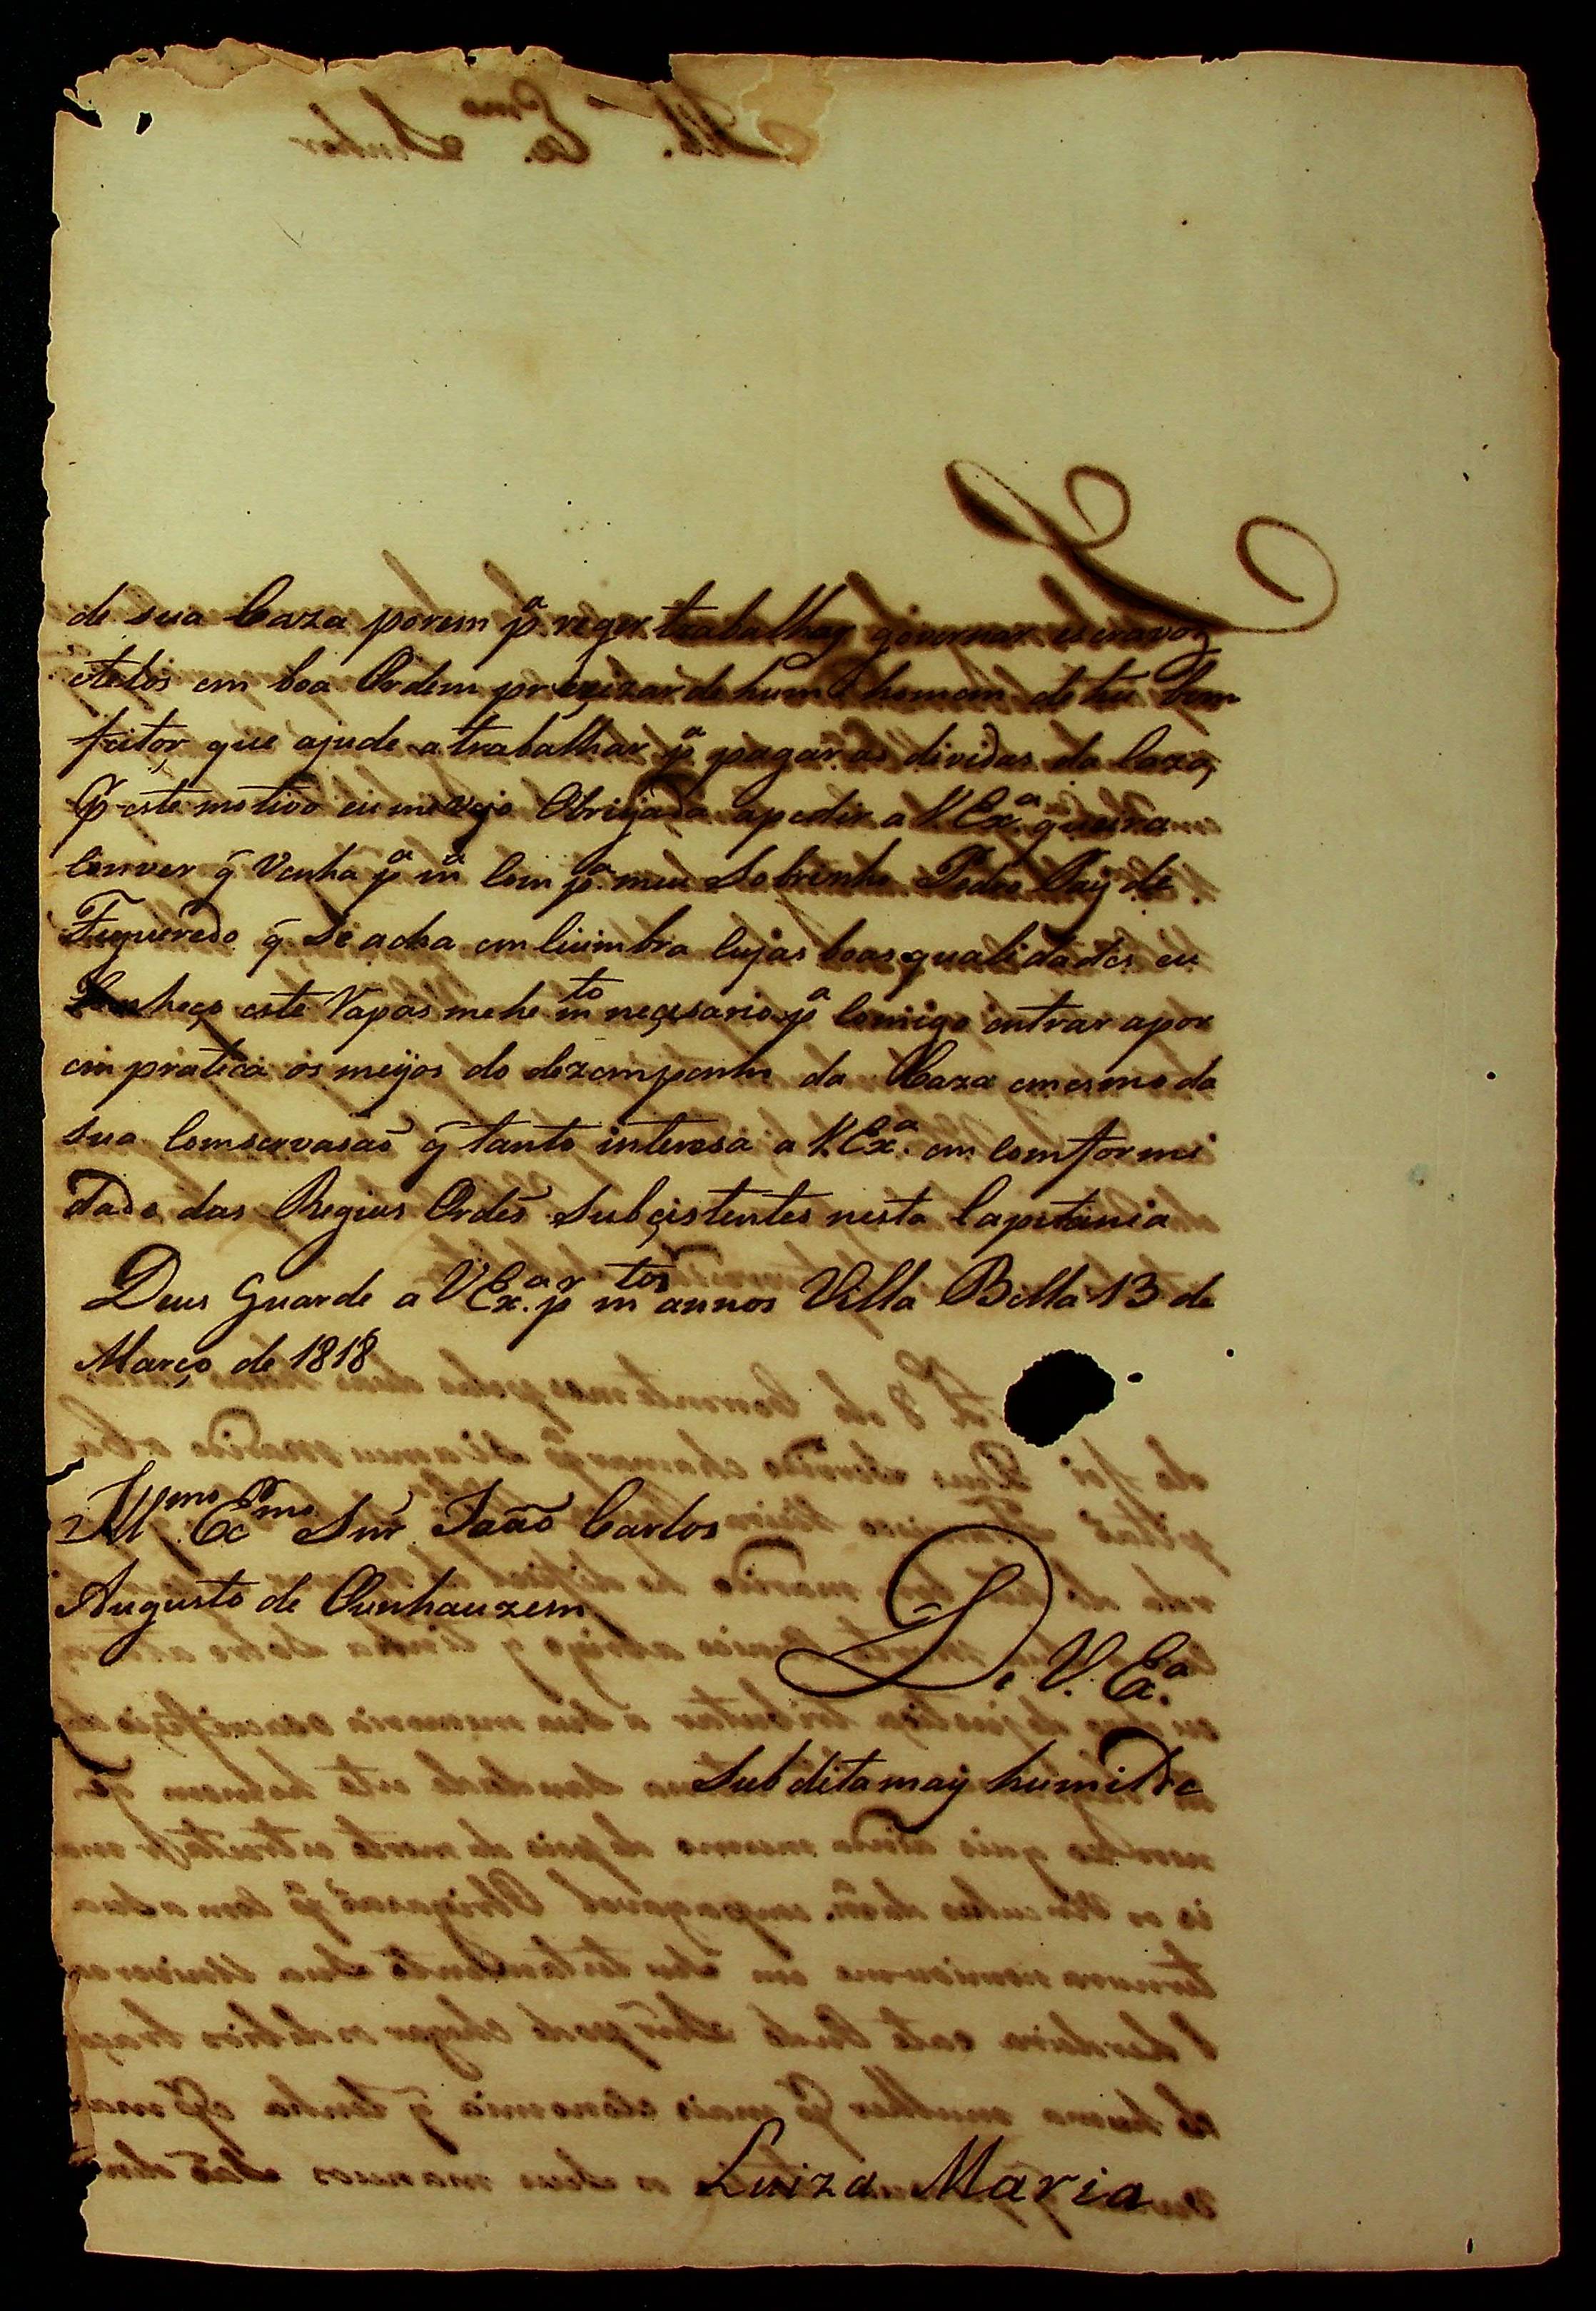 de sua Caza porem pª reger trabalhay governar escravoz
etelos em boa Ordem precizar de hum homem de hu bom
feitor, que ajude a trabalhar pª pagar as dividas da Caza,
P este motivo eu me vejo Obrigada apedir a V. Exª queira
Conver q̃ Venha pª mª Compª meu Sobrinho Pedro Pay de
Fugueredo q̃ Se acha em Cuimbra Cujas boas qualidades eu
Conheço este Rapas me he mto neçesario pª Comigo entrar apor
em pratica os meyos do dezempenho da Caza emesmo da
sua Comservasaõ q̃ tanto interesa a V. Exª. em Comformi
dade das Regias Ordẽs Subçistentes nesta Capitania
Deus Guarde a V Exª. pr mtos annos Villa Bella 13 de
Março de 1818
Illmo. Exmo Snr. Joaõ Carlos
Augusto de Oenhauzem
De V. Exª.
Subdita may humilde
Luiza Maria